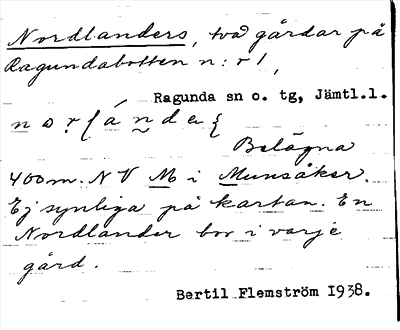 Nordlanders, två gårdar på
Ragundabotten n:r 1,
Ragunda sn o. tg, Jämtl.l.
Belägna
400 m. NV M i Munsåker.
Ej synliga på kartan. En
Nordlander bor i varje
gård.
Bertil Flemström 1938.